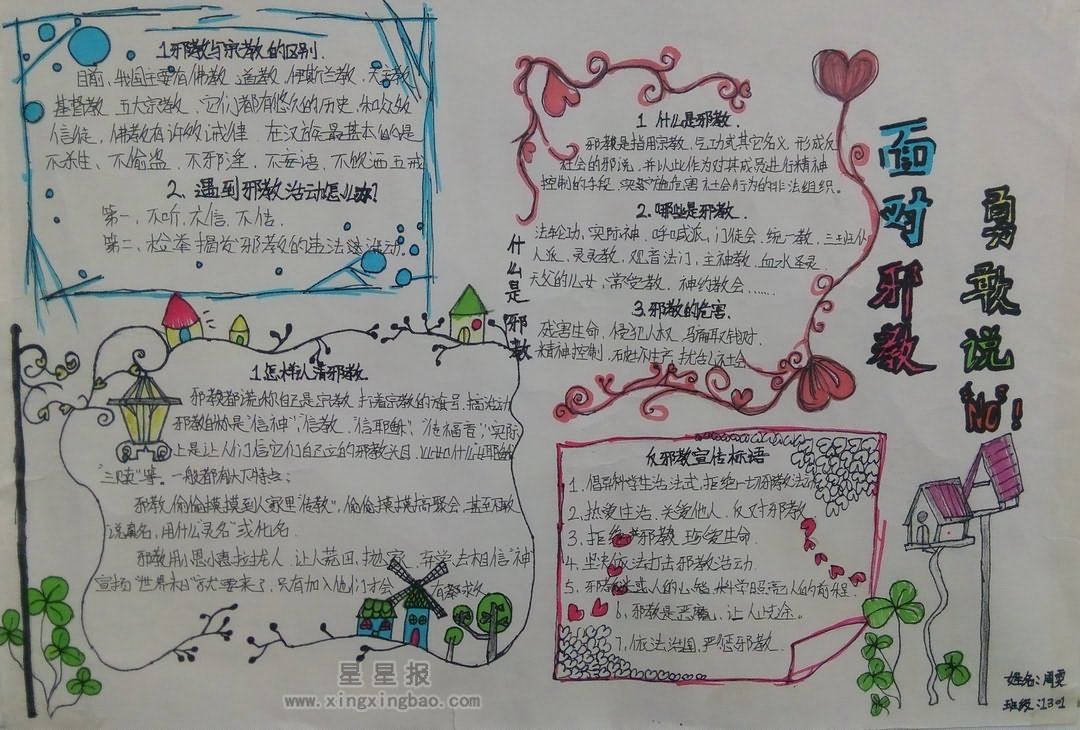 1.邪教与宗教的区别.
目前,我国主要有佛教、道教、伊斯兰教、天主教、
基督教 五大宗教、它们都有悠久的历史 和众然
信徒,佛教有许多戒律 在汉族最基本的是
不杀生、不偷盗、不邪淫、不妄语、不饮酒五戒
2、遇到邪教活动怎么办?
第一,不听,不信,不传。
第二、检举揭发邪教的违法活动。
什么是邪教
1. 什么是邪教.
邪教是指用宗教、气功或其它名义,形成反
社会的邪说,并以此作为对其成员进行精神
控制的手段,实施危害社会行为的非法组织。
2.哪些是邪教.
法轮功,实际神,呼喊派,门徒会,统一教,三班仆
人派,灵灵教,观音法门,主神教,血水圣灵
天父的儿女,常受教,神的教会……
3.邪教的危害.
残害生命,侵犯人权,骗取钱财,
精神控制,破坏生产,扰乱社会
面对邪教
勇敢说
"NO"!
1.怎样认清邪教
邪教都说你自己是宗教,打着宗教的旗号,搞活动
邪教自称是"信神""信教"、"信耶稣"、"传福音",实际
上是让人们信它们自己立的邪教头目,
"三赎"等。一般都有以下特点:
邪教,偷偷摸摸到人家里"传教",偷偷摸摸搞聚会,甚至不敢
说真名,用什么"灵名"或化名
邪教用小恩小惠拉拢人,让人荒田、抛家、弃学去相信"神"
宣扬"世界末日"就要来了,只有加入他们才会 有都求
反邪教宣传标语
1、倡导科学生活法式,拒绝一切邪教活动
2、热爱生活、关爱他人、反对邪教
3、拒绝邪教、珍爱生命.
4、坚决依法打击邪教活动.
5、邪教迷惑人的心给,科学照亮人的前程!
6、邪教是恶魔,让人失途。
7、依法治国,严惩邪教.
姓名:周雯
班级:1301
星星报
www.xingxingbao.com